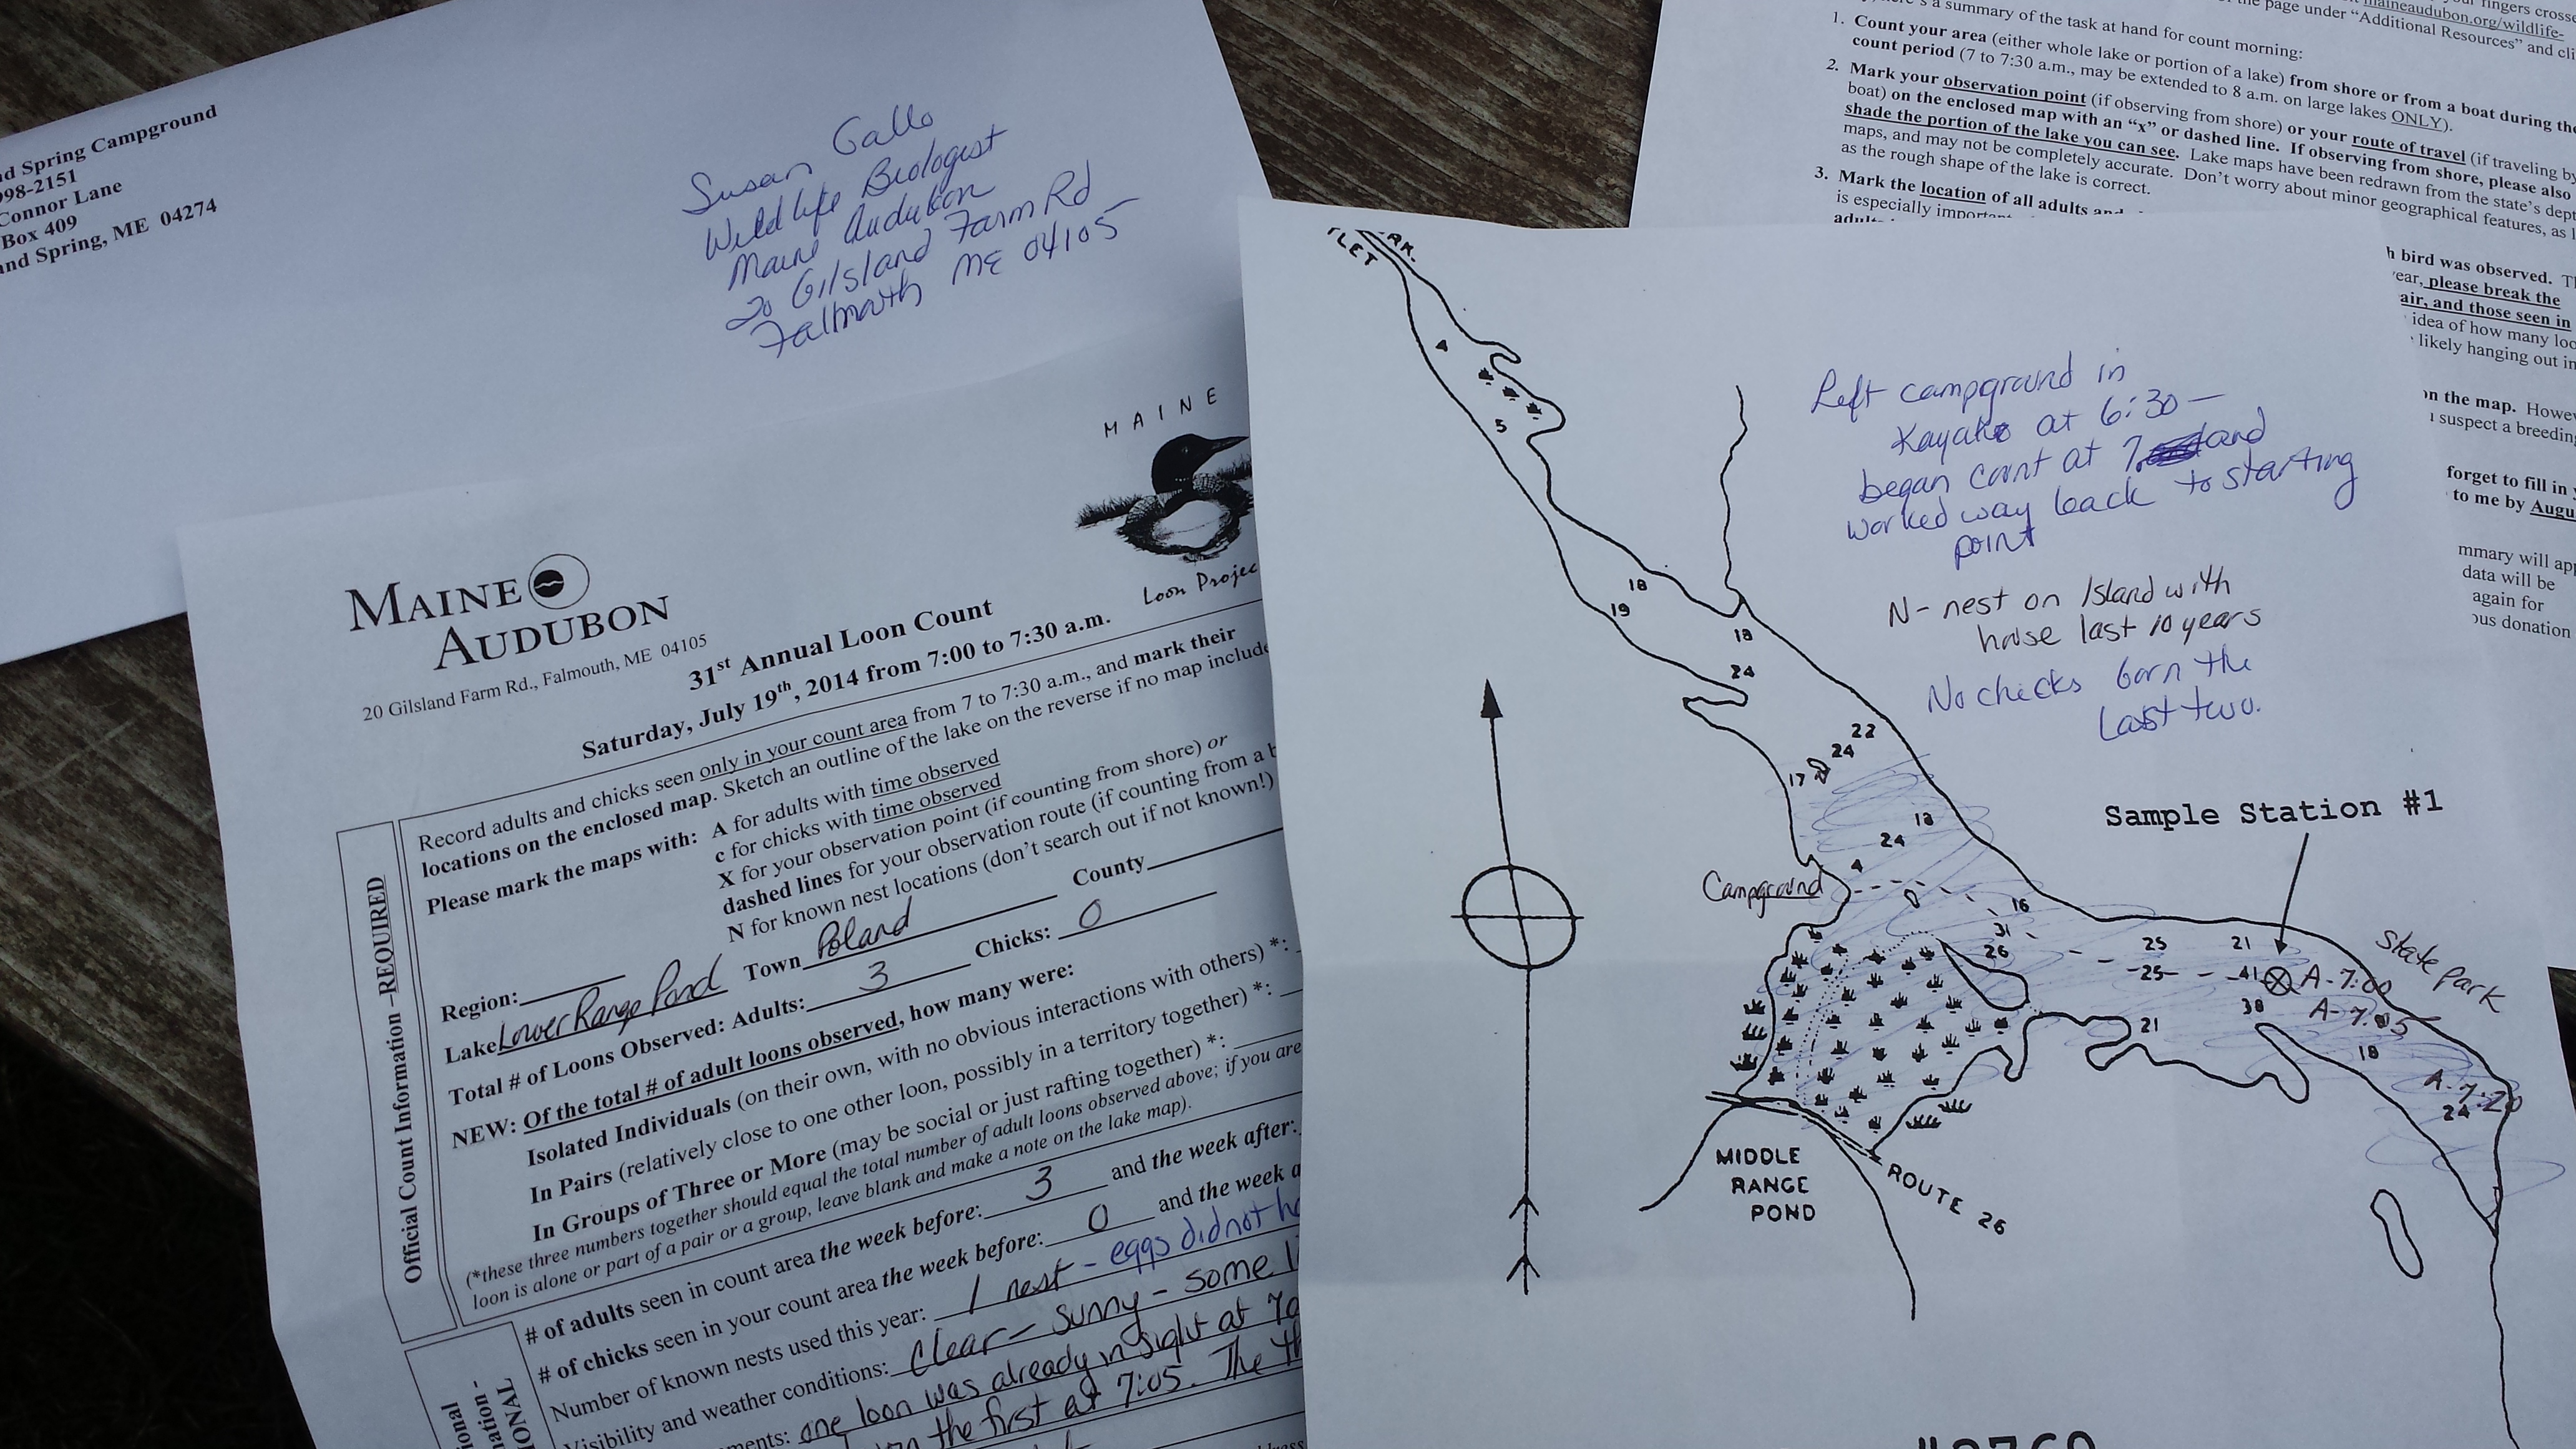 nd Spring Campground
998-2151
Connor Lane
Box 409
and Spring, ME 04274
Susan Gallo
Wildlife Biologist
Maine Audubon
20 Gilsland Farm Rd
Falmouth ME 04105
MAINE
Loon Projec
MAINE
AUDUBON
20 Gilsland Farm Rd., Falmouth, ME 04105
31st Annual Loon Count
Saturday, July 19th, 2014 from 7:00 to 7:30 a.m.
Official Count Information –REQUIRED
Record adults and chicks seen only in your count area from 7 to 7:30 a.m., and mark their
locations on the enclosed map. Sketch an outline of the lake on the reverse if no map include
Please mark the maps with: A for adults with time observed
c for chicks with time observed
X for your observation point (if counting from shore) or
dashed lines for your observation route (if counting from a b
N for known nest locations (don't search out if not known!)
Region:
Lake Lower Range Pond Town Poland County
Total # of Loons Observed: Adults: 3 Chicks: 0
NEW: Of the total # of adult loons observed, how many were:
Isolated Individuals (on their own, with no obvious interactions with others) *:
In Pairs (relatively close to one other loon, possibly in a territory together) *:
In Groups of Three or More (may be social or just rafting together) *:
(*these three numbers together should equal the total number of adult loons observed above; if you are
loon is alone or part of a pair or a group, leave blank and make a note on the lake map).
# of adults seen in count area the week before: 3 and the week after:
# of chicks seen in your count area the week before: 0 and the week a
Number of known nests used this year: 1 nest - eggs did not h
Visibility and weather conditions: Clear - sunny - some
ments: one loon was already in sight at 7
the first at 7:05. The th
ional
mation -
IONAL
here's a summary of the task at hand for count morning:
the page under "Additional Resources" and cli
maineaudubon.org/wildlife-
your fingers crosse
1. Count your area (either whole lake or portion of a lake) from shore or from a boat during the
count period (7 to 7:30 a.m., may be extended to 8 a.m. on large lakes ONLY).
2. Mark your observation point (if observing from shore) or your route of travel (if traveling by
boat) on the enclosed map with an "x" or dashed line. If observing from shore, please also
shade the portion of the lake you can see. Lake maps have been redrawn from the state's dept
maps, and may not be completely accurate. Don't worry about minor geographical features, as l
as the rough shape of the lake is correct.
3. Mark the location of all adults and
is especially important
h bird was observed. T
year, please break the
air, and those seen in
idea of how many loo
likely hanging out in
on the map. Howe
suspect a breedin
forget to fill in
to me by Augu
mmary will app
data will be
again for
ous donation
TLET
AK.
Left campground in
Kayaks at 6:30 —
began count at 7 and
worked way back to starting
point
N- nest on Island with
house last 10 years
No chicks born the
last two.
4
5
18
19
18
24
22
24
17
18
24
4
Sample Station #1
Campground
16
31
26
25
21
25
41
A-7:00
38
A-7:05
21
18
A-7:20
24
State Park
MIDDLE
RANGE
POND
ROUTE 26